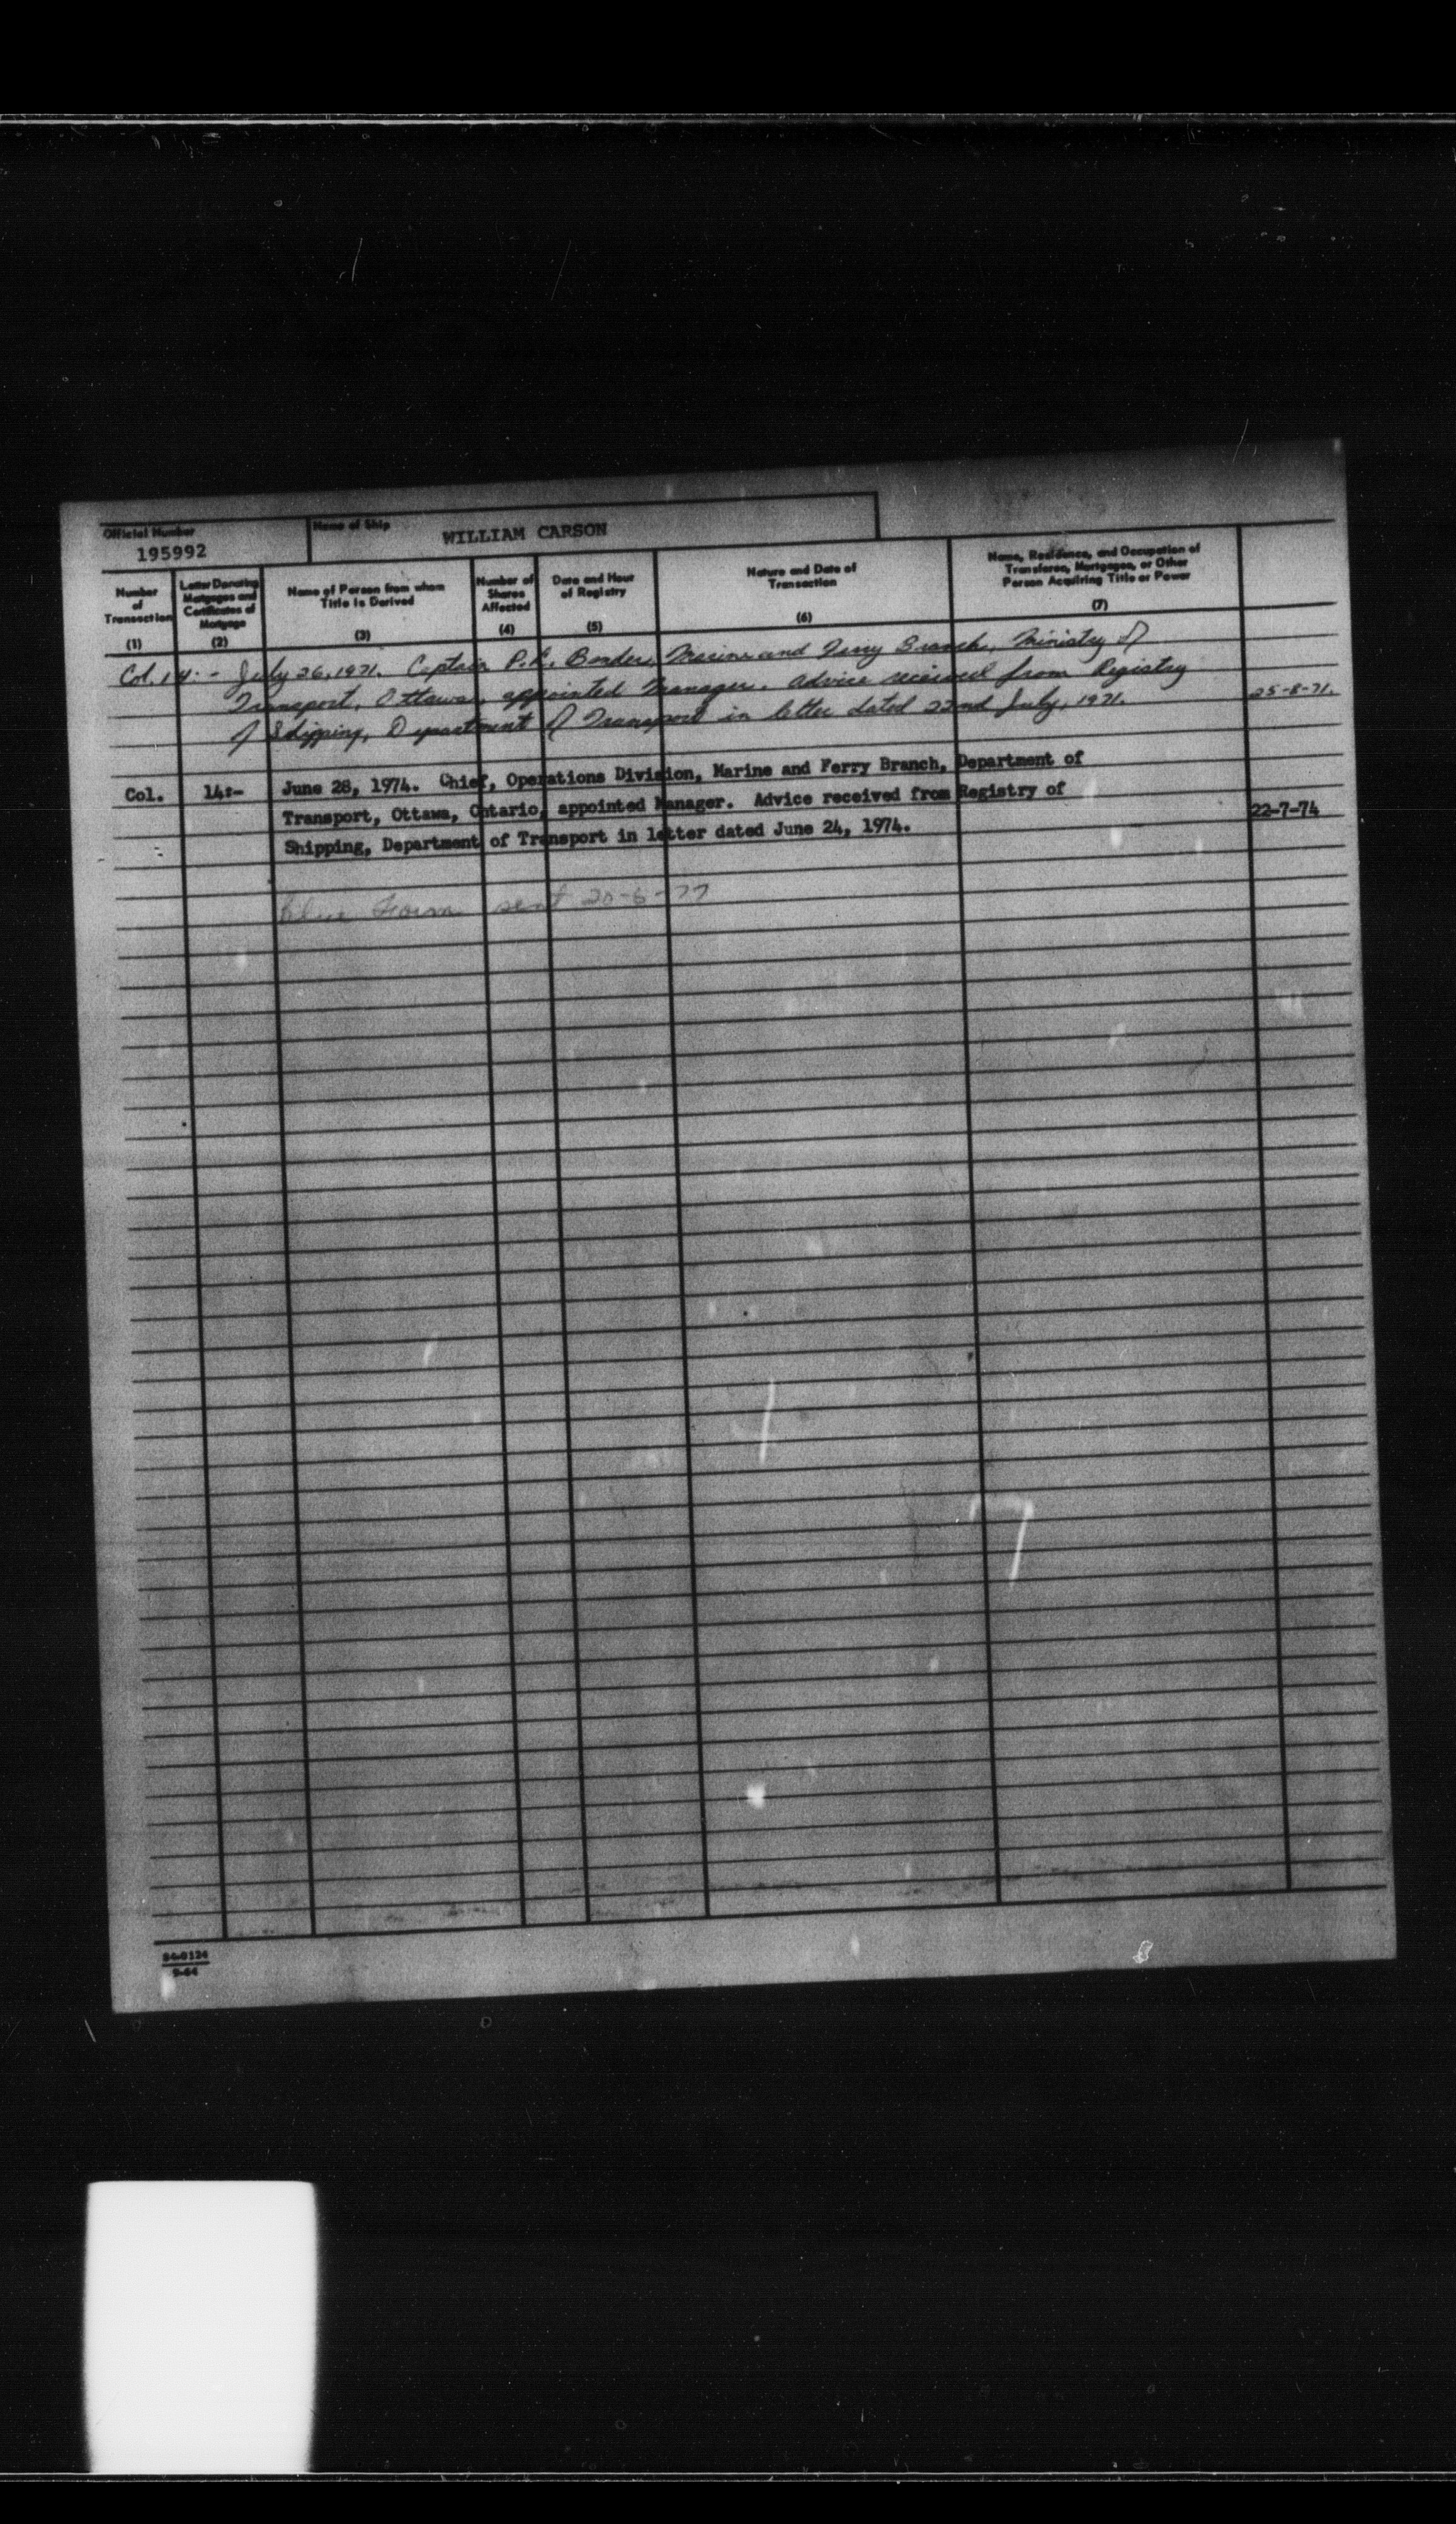 Official Number
195992
Name of Ship
WILLIAM CARSON
Number of Transaction (1)
Letter Denoting Mortgages and Certificates of Mortgage (2)
Name of Person from whom Title is Derived (3)
Number of Shares Affected (4)
Date and Hour of Registry (5)
Nature and Date of Transaction (6)
Name, Residence, and Occupation of Transferee, Mortgagee, or Other Person Acquiring Title or Power (7)
Col. 14:- July 26, 1971. Captain P. Bender, Marine and Ferry Branch, Ministry of
Transport, Ottawa, appointed Manager. Advice received from Registry
of Shipping, Department of Transport in letter dated 22nd July, 1971. 25-8-71.
Col. 14:- June 28, 1974. Chief, Operations Division, Marine and Ferry Branch, Department of
Transport, Ottawa, Ontario, appointed Manager. Advice received from Registry of
Shipping, Department of Transport in letter dated June 24, 1974. 22-7-74
blue Form sent 20-6-77
84-0124
9-64